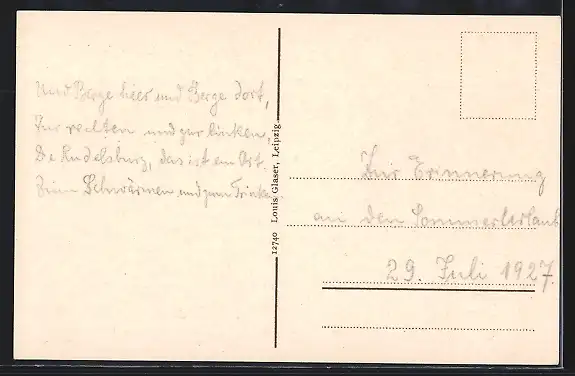 Und Berge hier und Berge dort,
Zur rechten und zur linken,
De Rudelsburg, das ist ein Ort
Zum Schwärmen und zum Trinken.
12740 Louis Glaser, Leipzig
Zur Erinnerung
an den Sommerurlaub
29. Juli 1927.